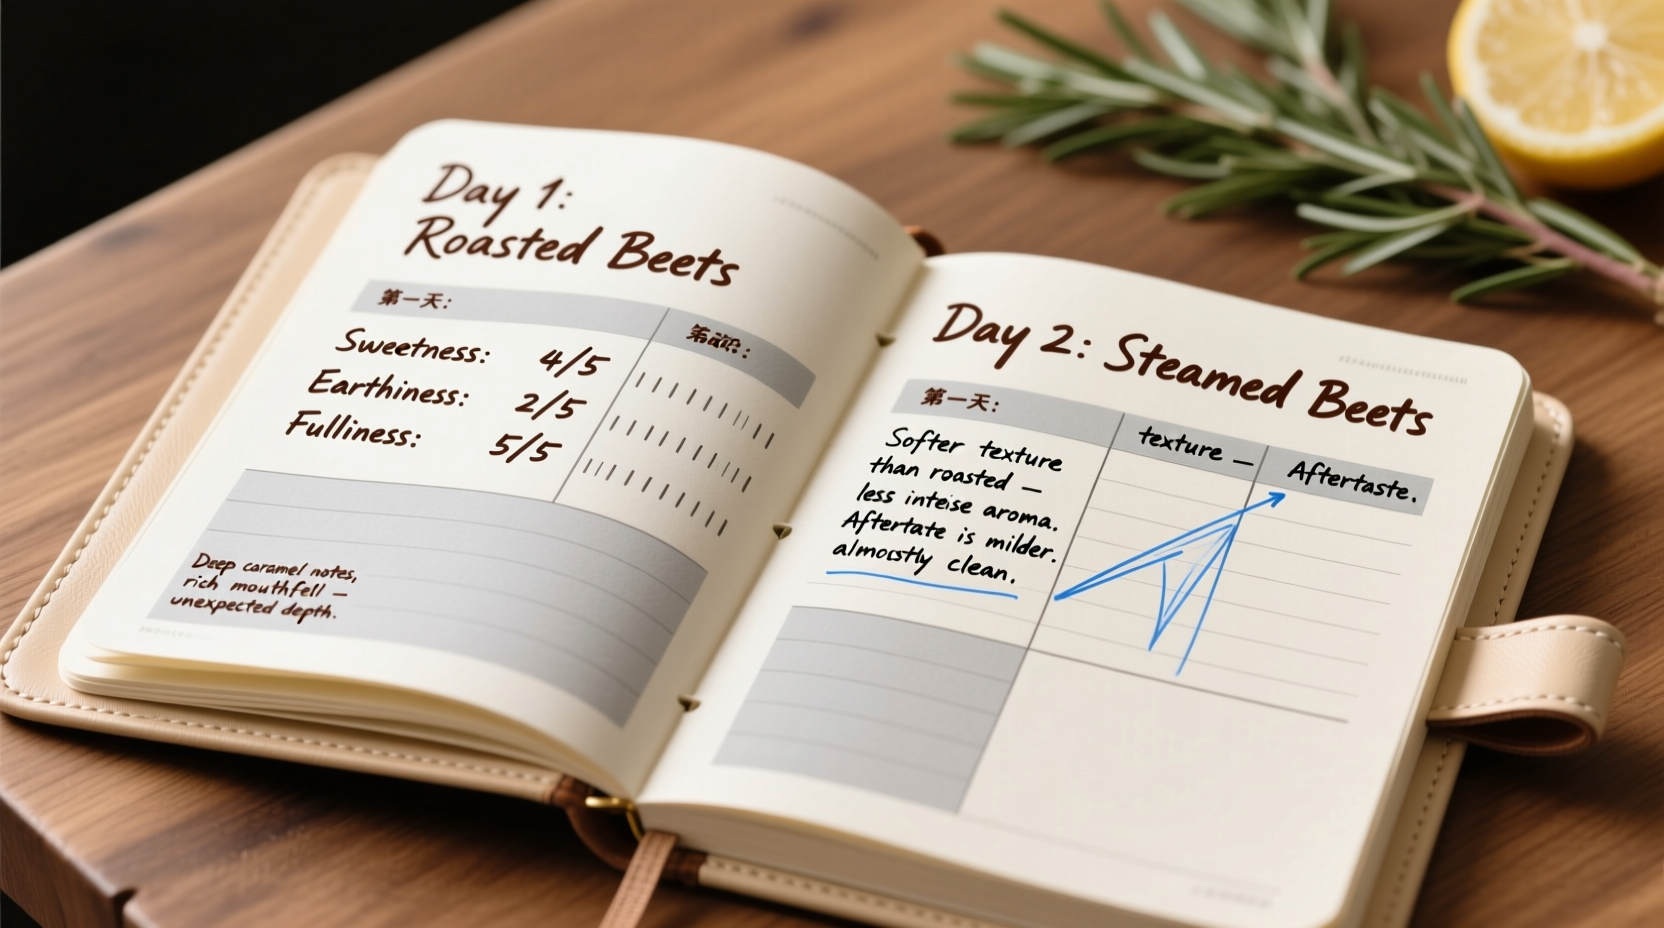 Day 1:
Roasted Beets
第一天:
Sweetness: 4/5
Earthiness: 2/5
Fulliness: 5/5
Deep caramel notes,
rich mouthfell —
unexpected depth.
Day 2: Steamed Beets
第一天:
texture —
Aftertaste.
Softer texture
than roasted —
less inteise aroma.
Aftertate is milder.
almoıstly clean.